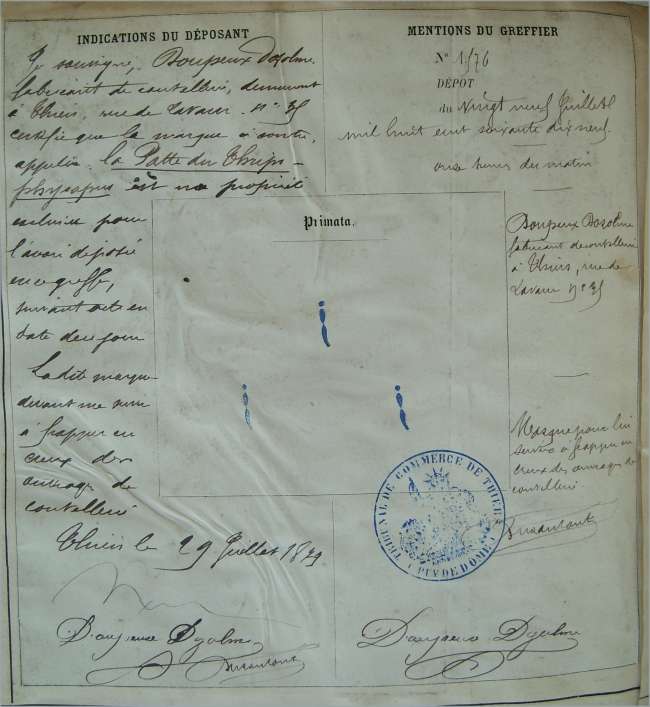 INDICATIONS DU DÉPOSANT
Je soussigné, Dozolme
fabricant de coutellerie, demeurant
à Thiers, rue de Lavaur n° 35
certifie que la marque ci contre,
appelée la Patte du Thrips
physapus est ma propriété
exclusive pour
l'avoir déposée
en ce greffe,
suivant acte en
date de ce jour
La dite marque
devant me servir
à frapper en
creux des
ouvrages de
coutellerie
Thiers le 29 Juillet 1879
Dozolme
MENTIONS DU GREFFIER
N° 1576
DÉPÔT
du Vingt neuf Juillet
mil huit cent soixante dix neuf
onze heures du matin
Primata.
Dozolme
fabricant de coutellerie
à Thiers, rue de
Lavaur n° 35
Marque pour lui
servir à frapper en
creux des ouvrages de
coutellerie
TRIBUNAL DE COMMERCE DE THIERS
(PUY DE DOME)
Dozolme